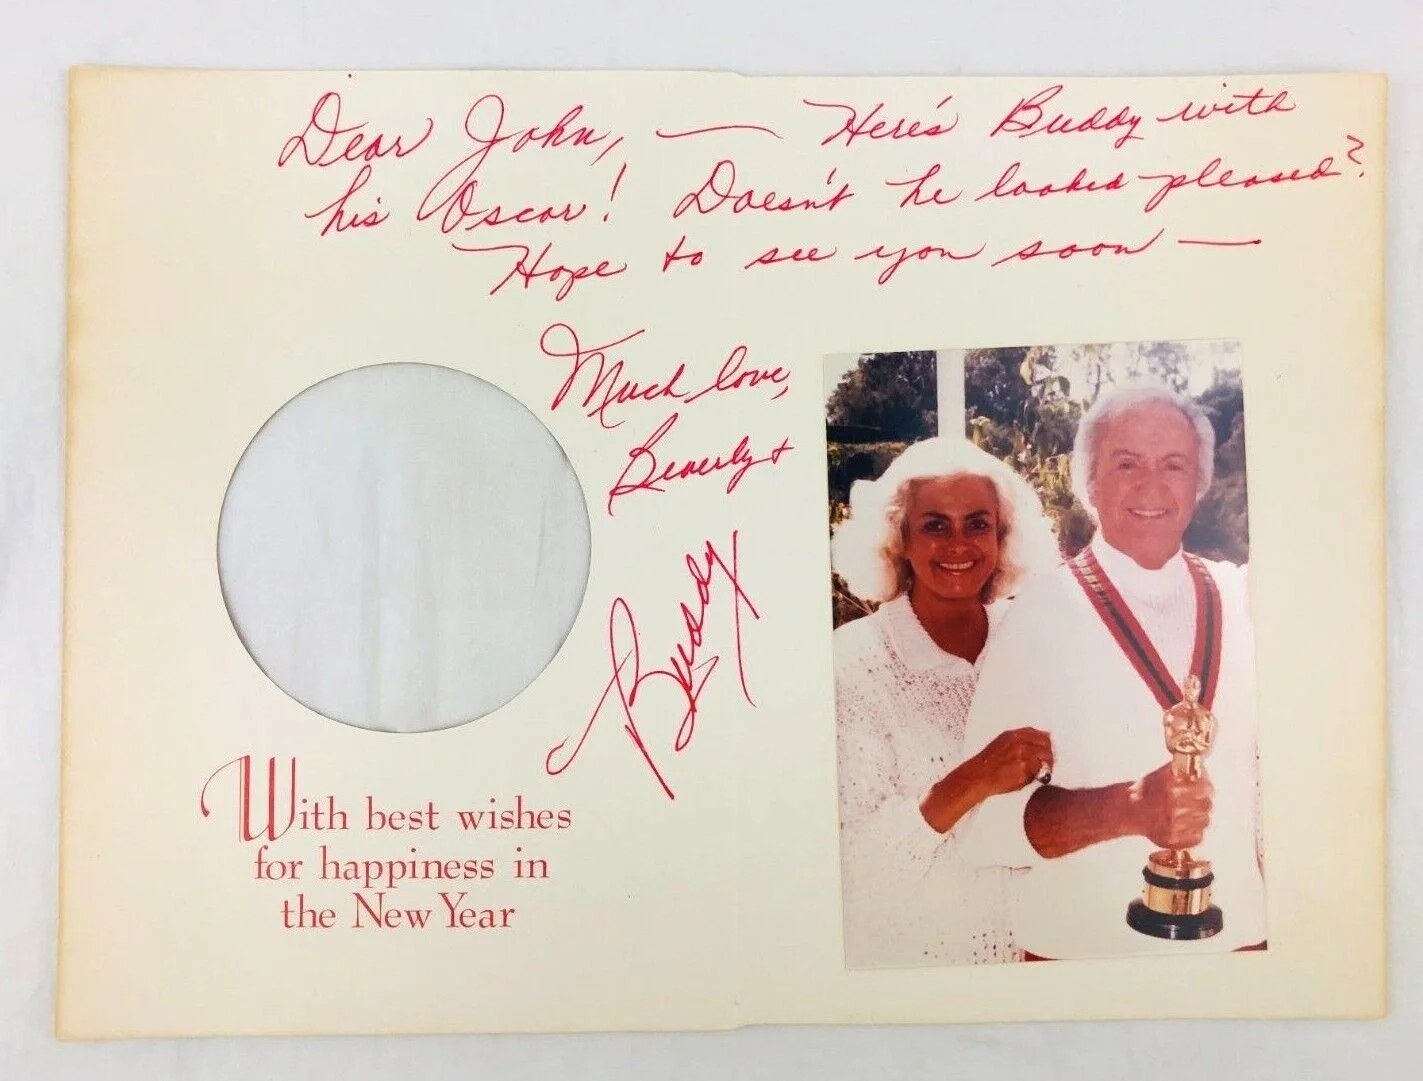 Dear John, — Here's Buddy with
his Oscar! Doesn't he looked pleased?
Hope to see you soon —
Much love,
Beverly +
Buddy
With best wishes
for happiness in
the New Year